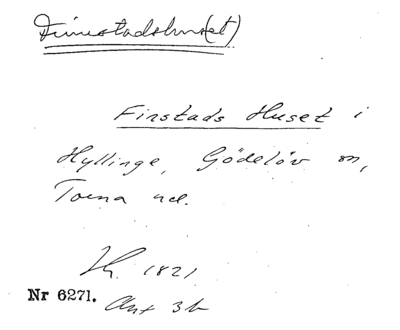 Finnstadshus(et)
Finstads Huset i
Hyllinge, Gödelöv sn,
Torna hd.
Hfl. 1821
Nr 6271. Ant 3b